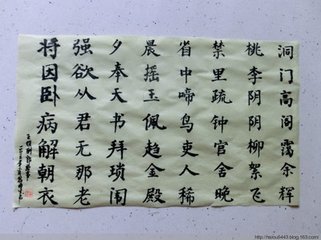 洞门高阁霭余辉
桃李阴阴柳絮飞
禁里疏钟官舍晚
省中啼鸟吏人稀
晨摇玉佩趋金殿
夕奉天书拜琐闱
强欲从君无那老
将因卧病解朝衣